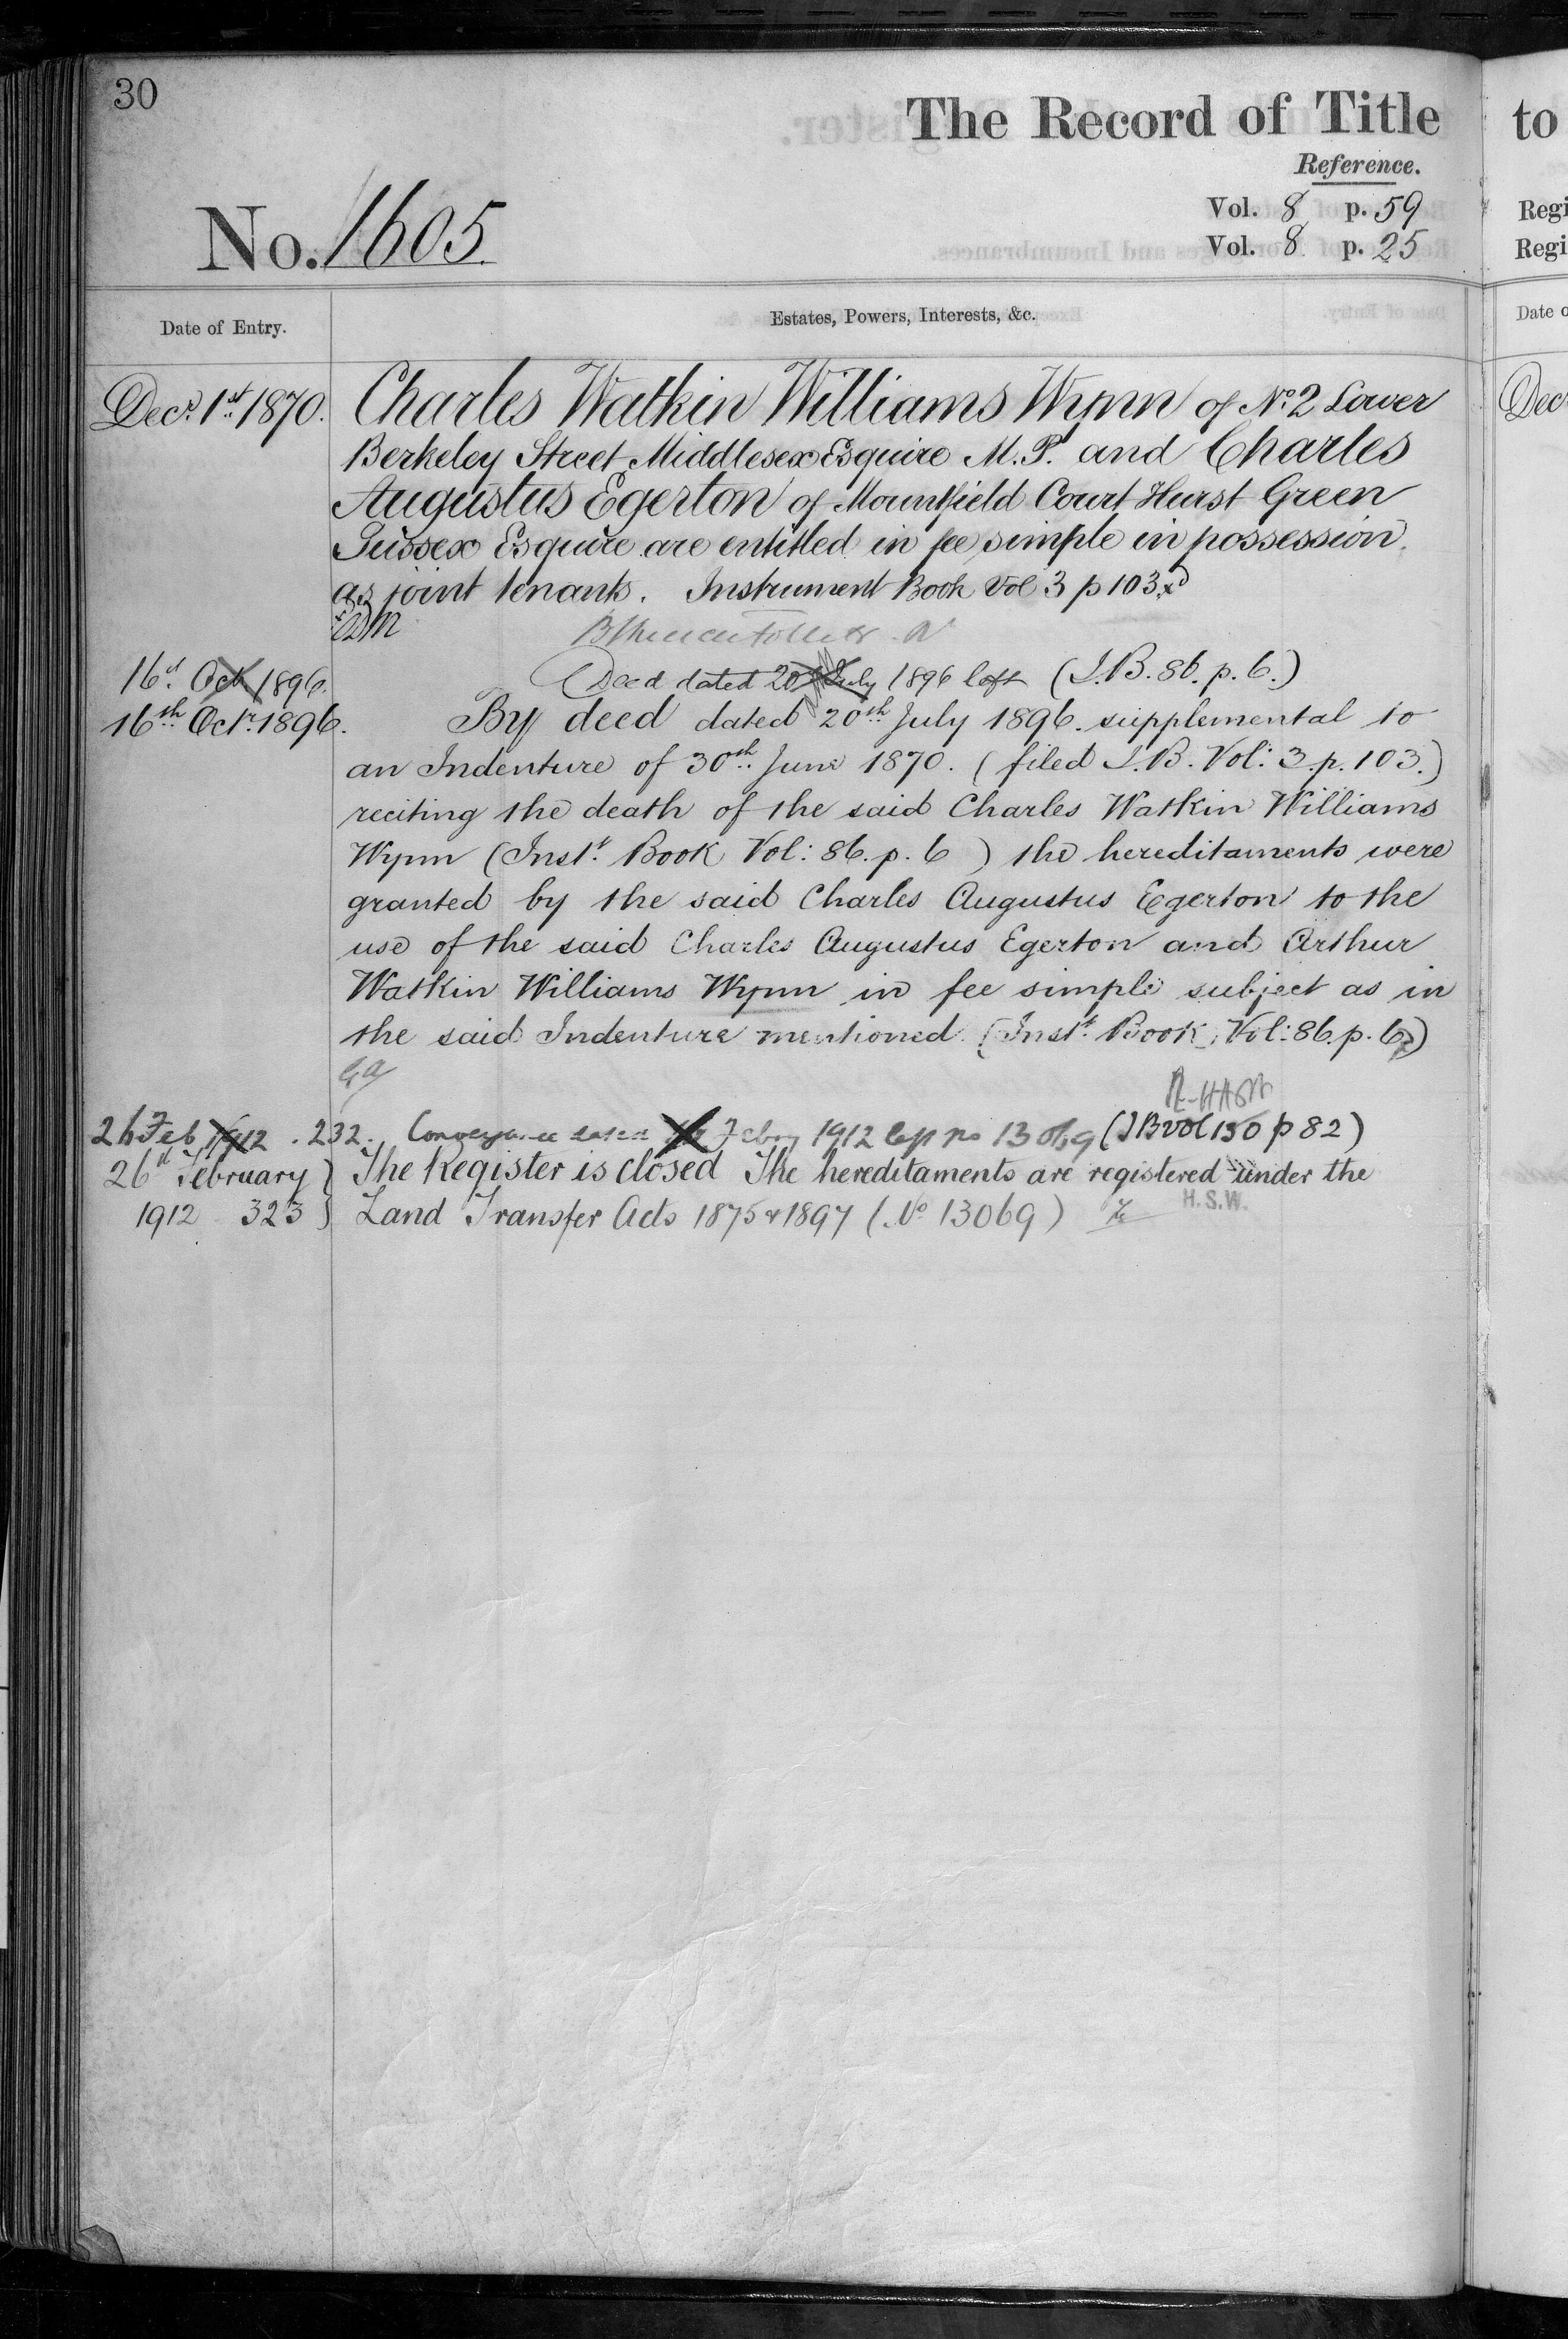 30
The Record of Title
Reference.
Vol. 8 p. 59
Vol. 8 p. 25
No. 1605
Date of Entry.
Estates, Powers, Interests, &c.
Decr. 1st. 1870. Charles Watkin Williams Wynn of No. 2 Lower
Berkeley Street Middlesex Esquire M.P. and Charles
Augustus Egerton of Mountfield Court Hurst Green
Sussex Esquire are entitled in fee simple in possession
as joint tenants. Instrument Book Vol 3 p 103
16th Oct 1896. (Deed dated 20th July 1896 left (I.B. 86. p. 6.)
16th. Octr. 1896. By deed dated 20th. July 1896. supplemental to
an Indenture of 30th. June 1870. (filed I.B. Vol: 3. p. 103.)
reciting the death of the said Charles Watkin Williams
Wynn (Inst. Book Vol: 86. p. 6) the hereditaments were
granted by the said Charles Augustus Egerton to the
use of the said Charles Augustus Egerton and Arthur
Watkin Williams Wynn in fee simple subject as in
the said Indenture mentioned. (Inst. Book, Vol: 86. p. 6)
26 Feb 1912 . 232. Conveyance dated Febry 1912 left no 13069 (IB vol 150 p 82)
26th February The Register is closed The hereditaments are registered under the
1912 323 Land Transfer Acts 1875 & 1897 (No 13069)
H.S.W.
to
Regi
Regi
Date o
Dec